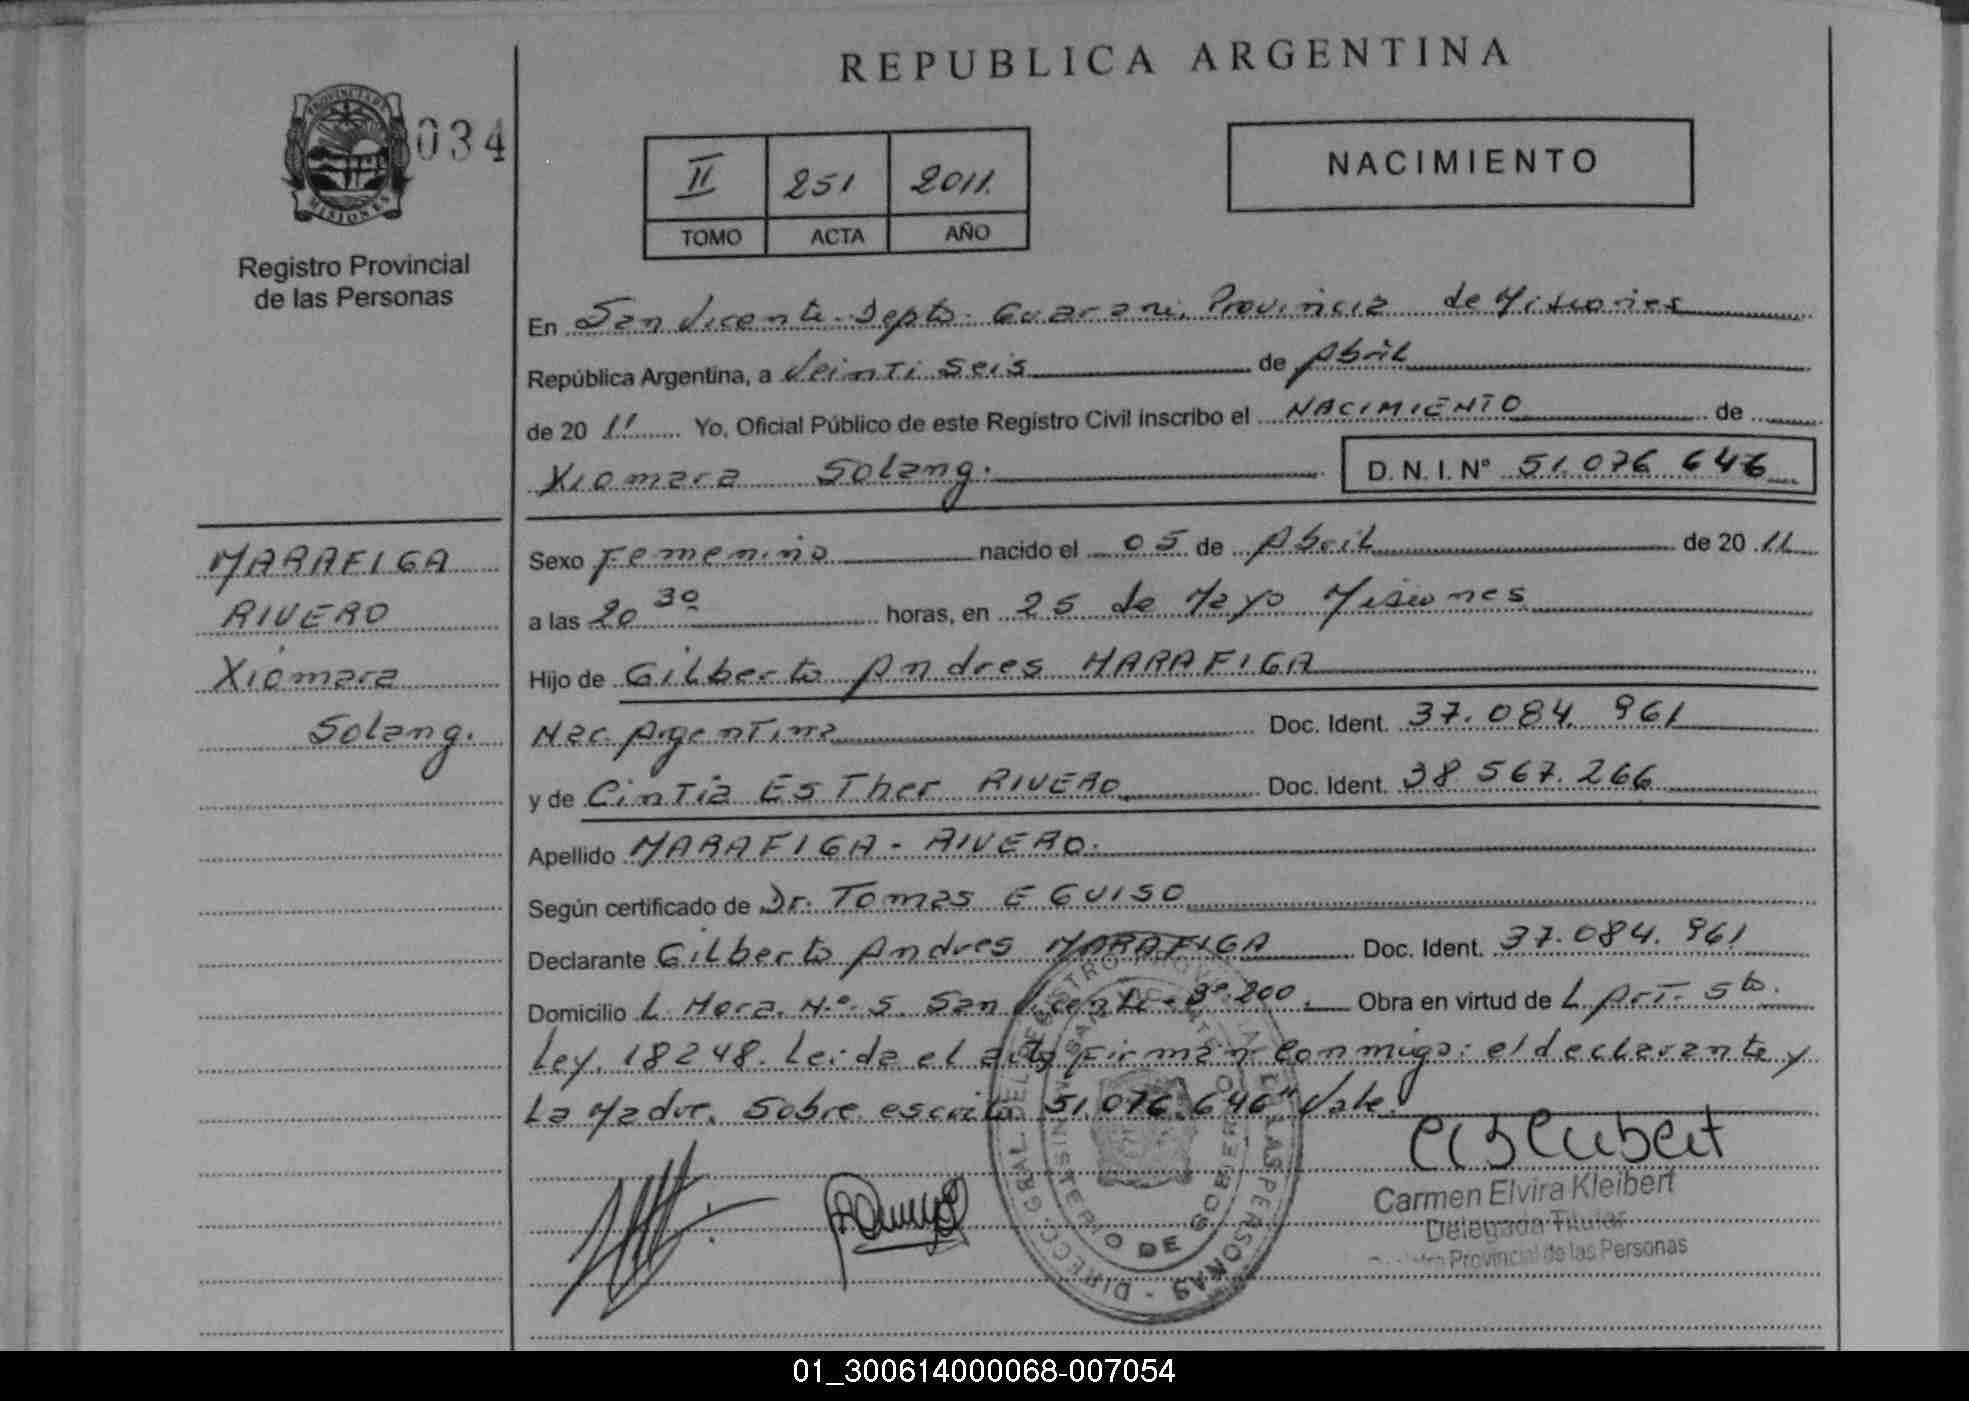 REPUBLICA ARGENTINA
PROVINCIA DE
MISIONES
034
Registro Provincial
de las Personas
II 251 2011.
TOMO ACTA AÑO
NACIMIENTO
En San Vicente. Depto. Guarani. Provincia de Misiones
República Argentina, a Veinti seis de Abril
de 20 11 Yo, Oficial Público de este Registro Civil inscribo el NACIMIENTO de
Xiomara Solang. D. N. I. Nº 51.076 646
MARAFIGA
RIVERO
Xiomara
Solang.
Sexo Femenino nacido el 05 de Abril de 20 11
a las 20 30 horas, en 25 de Mayo Misiones
Hijo de Gilberto Andres MARAFIGA
Nac. Argentina Doc. Ident. 37.084. 961
y de Cintia EsTher RIVERO Doc. Ident. 38.567.266
Apellido MARAFIGA - RIVERO.
Según certificado de Dr. Tomas EGUISO
Declarante Gilberto Andres MARAFIGA Doc. Ident. 37.084. 961
Domicilio L. Mora. N.º 5. San Vicente - Bº 200. Obra en virtud de L Art. 5to.
Ley. 18248. Leida el acta firman conmigo: el declarante y
La Madre. Sobre escrito 51.076.646" Vale.
DIRECC. GRAL. DEL REGISTRO PROVINCIAL DE LAS PERSONAS
MINISTERIO DE GOBIERNO
Carmen Elvira Kleibert
Delegada Titular
Provincial de las Personas
01_300614000068-007054